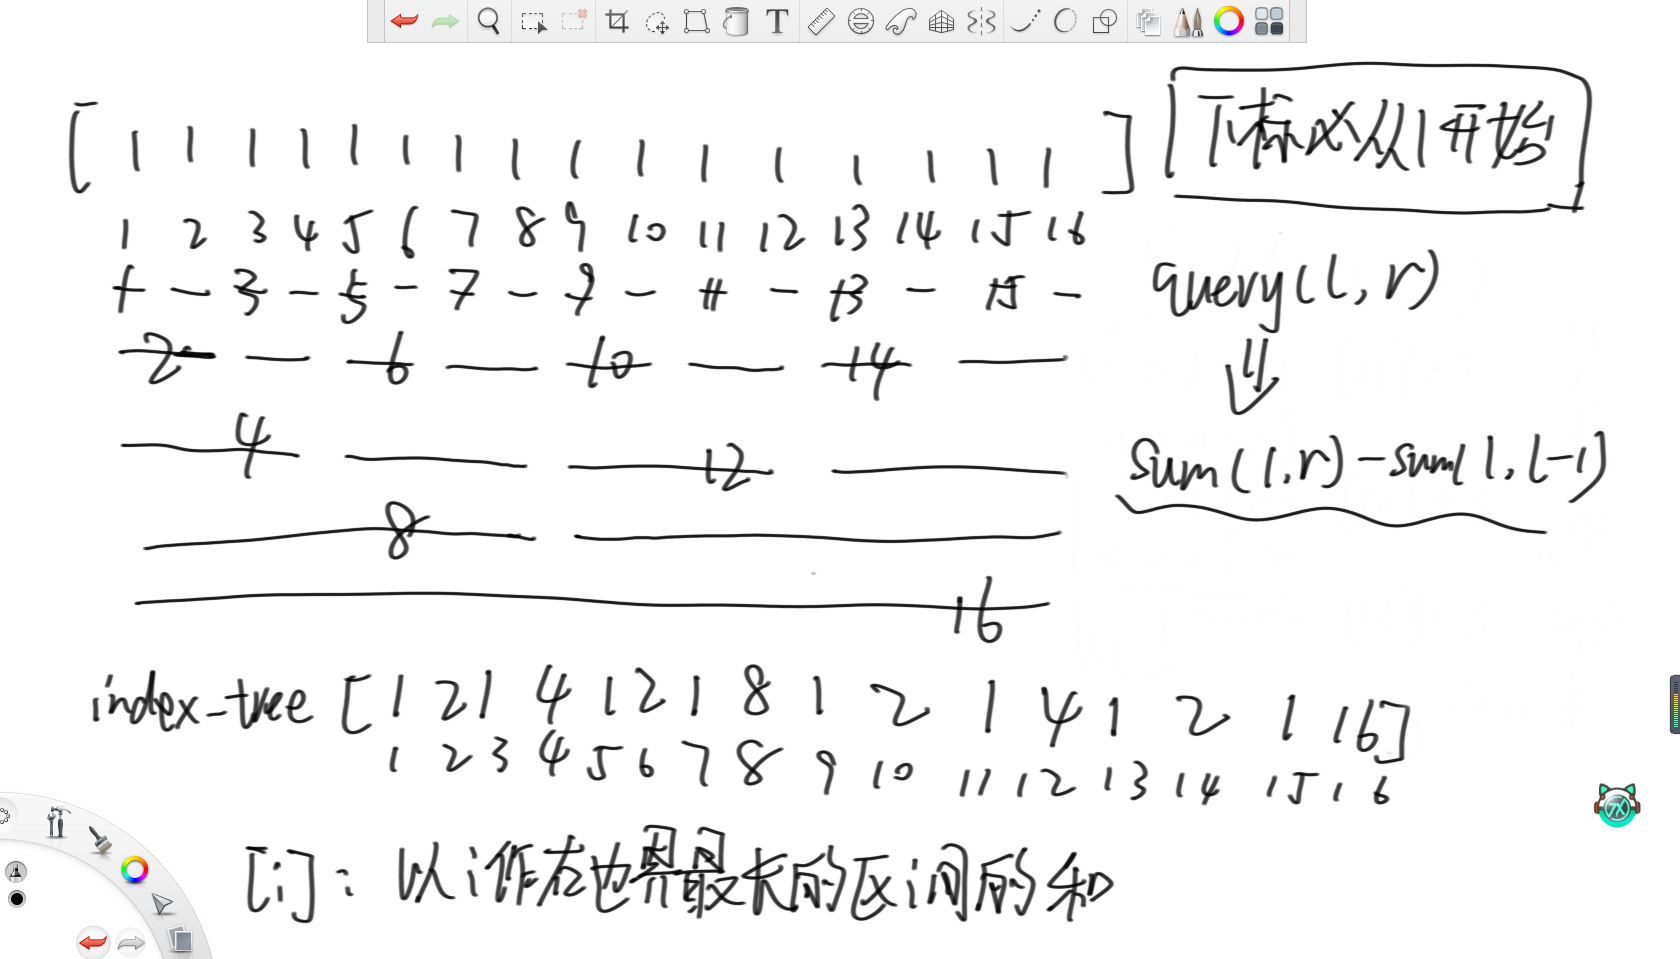 [ 1 1 1 1 1 1 1 1 1 1 1 1 1 1 1 1 ]
下标必从1开始
1 2 3 4 5 6 7 8 9 10 11 12 13 14 15 16
1 3 5 7 9 11 13 15
query(l,r)
2 6 10 14
4 12
sum(1,r)-sum(1,l-1)
8
16
index-tree [1 2 1 4 1 2 1 8 1 2 1 4 1 2 1 16]
1 2 3 4 5 6 7 8 9 10 11 12 13 14 15 16
[i]: 以i作右边界最长的区间的和